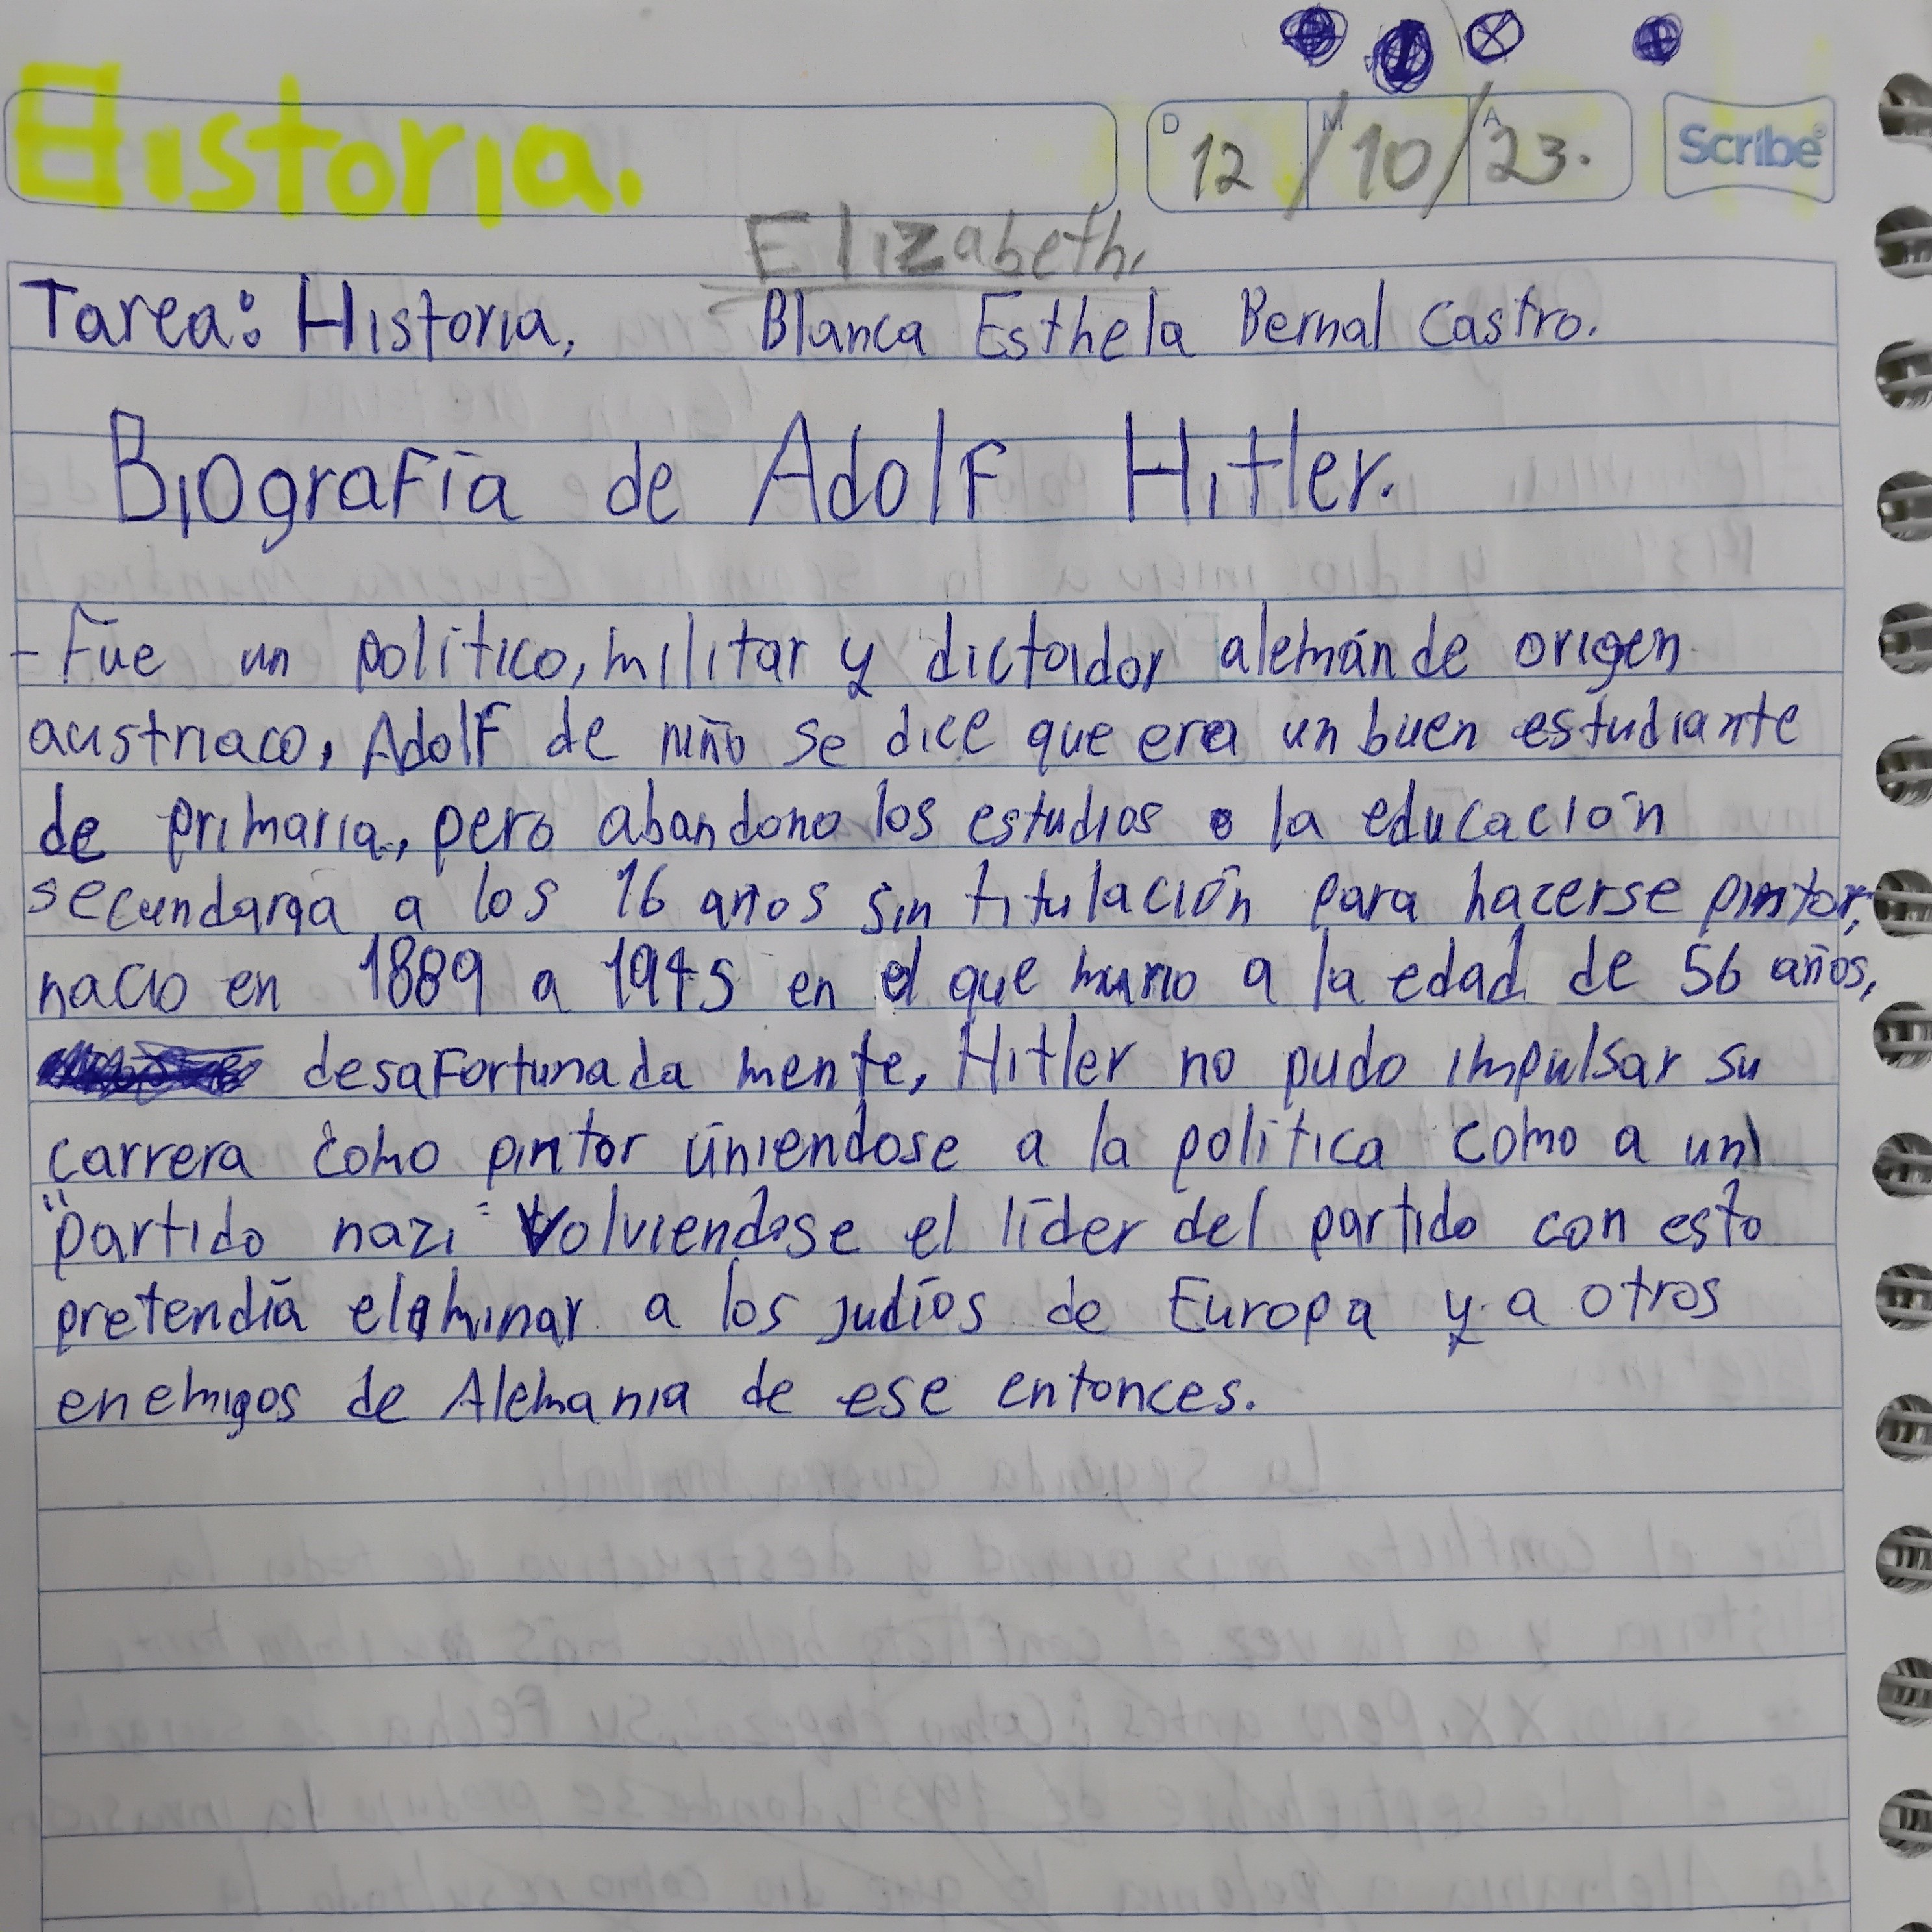 Historia.
D 12 / M 10 / A 23.
Scribe
Elizabeth.
Tarea: Historia, Blanca Esthela Bernal Castro.
Biografía de Adolf Hitler.
- Fue un político, militar y dictador alemán de origen
austriaco, Adolf de niño se dice que era un buen estudiante
de primaria, pero abandono los estudios o la educación
secundaria a los 16 años sin titulación para hacerse pintor,
nacio en 1889 a 1945 en el que murio a la edad de 56 años,
desafortunada mente, Hitler no pudo impulsar su
carrera como pintor úniendose a la política como a un
"partido nazi" volviendose el líder del partido con esto
pretendía eliminar a los judíos de Europa y a otros
enemigos de Alemania de ese entonces.